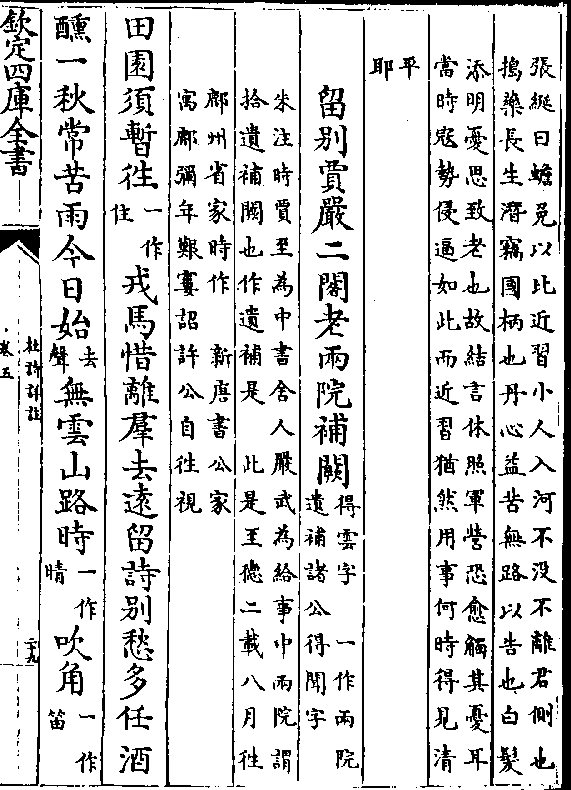 張綖曰蟾兔以比近習小人入河不没不離君側也
搗藥長生潛竊國柄也丹心益苦無路以告也白髮
添明憂思致老也故結言休照軍營恐愈觸其憂耳
當時寇勢侵逼如此而近習猶然用事何時得見清
平耶
留别賈嚴二閣老兩院補闕得雲字　一作兩院遺補諸公得聞字
朱注時賈至為中書舍人嚴武為給事中兩院謂
拾遺補闕也作遺補是　此是至德二載八月徃
鄜州省家時作　新唐書公家
寓鄜彌年艱窶詔許公自徃視
田園須暫徃一作住戎馬惜離羣去遠留詩别愁多任酒
醺一秋常苦雨今日始去聲無雲山路時一作晴吹角一作笛
欽定四庫全書
杜詩詳註
卷五
二十九